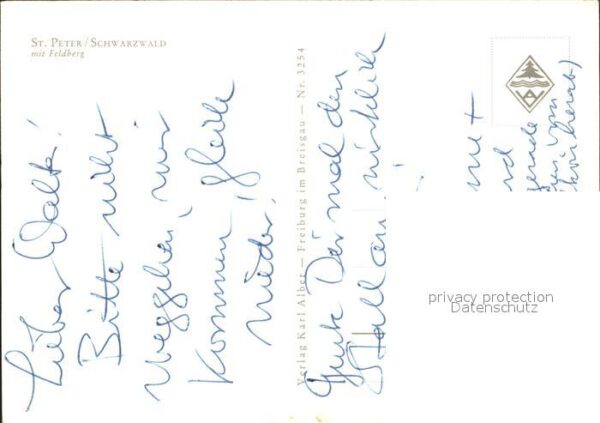 ST. PETER / SCHWARZWALD
mit Feldberg
Lieber Walter!
Bitte nicht
weggehen, wir
kommen gleich
wieder!
Verlag Karl Alber — Freiburg im Breisgau — Nr. 3254
Guck Dir mal den
Stall an, wirklich
privacy protection
Datenschutz